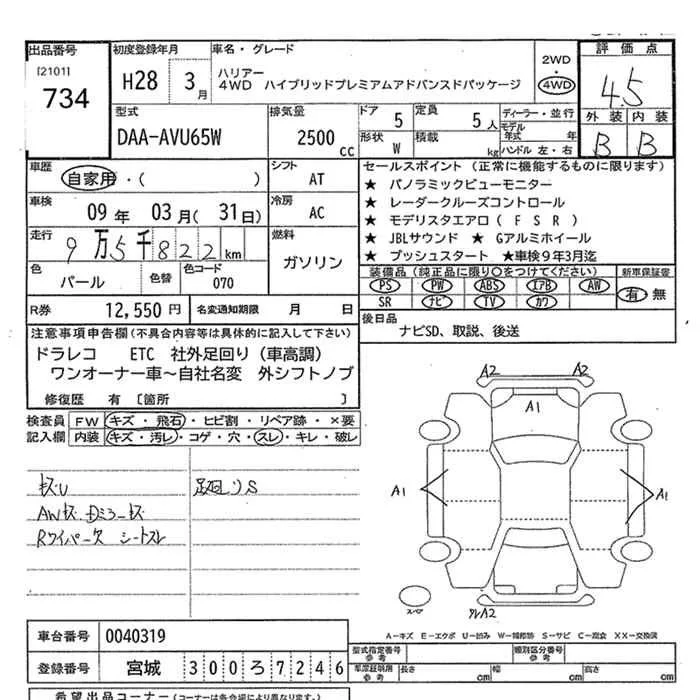 出品番号
[2101]
734
初度登録年月
H28 3月
車名・グレード
ハリアー
4WD ハイブリッドプレミアムアドバンスドパッケージ
2WD
・
4WD
評価点
4.5
外装 内装
B B
型式
DAA-AVU65W
排気量
2500 cc
ドア 5
定員 5人
形状 W
積載 kg
ディーラー・並行
モデル年式 年
ハンドル 左・右
車歴
自家用・( )
シフト
AT
車検
09年 03月( 31日)
冷房
AC
走行
9万5千822km
燃料
ガソリン
色
パール
色替
色コード
070
R券 12,550円
名変通知期限 月 日
セールスポイント(正常に機能するものに限ります)
★ パノラミックビューモニター
★ レーダークルーズコントロール
★ モデリスタエアロ(FSR)
★ JBLサウンド ★ Gアルミホイール
★ プッシュスタート ★車検9年3月迄
装備品(純正品に限り○をつけてください)
PS PW ABS エアB AW
SR ナビ TV カワ
新車保証書
有 無
後日品
ナビSD、取説、後送
注意事項申告欄(不具合内容等は具体的に記入して下さい)
ドラレコ ETC 社外足回り(車高調)
ワンオーナー車〜自社名変 外シフトノブ
修復歴 有 [箇所 ]
検査員記入欄
FW キズ・飛石・ヒビ割・リペア跡・×要
内装 キズ・汚レ・コゲ・穴・スレ・キレ・破レ
キズU
足廻りS
AWキズ
Rワイパー欠 シートスレ
A2 A2
A1
A1 A1
スペア
A2
A-キズ E-エクボ U-凹み W-補修跡 S-サビ C-腐食 XX-交換済
車台番号 0040319
登録番号 宮城 300ろ7246
型式指定番号 参考
類別区分番号 参考
長さ cm 幅 cm 高さ cm
希望出品コーナー(コーナーは各会場により異なります。)